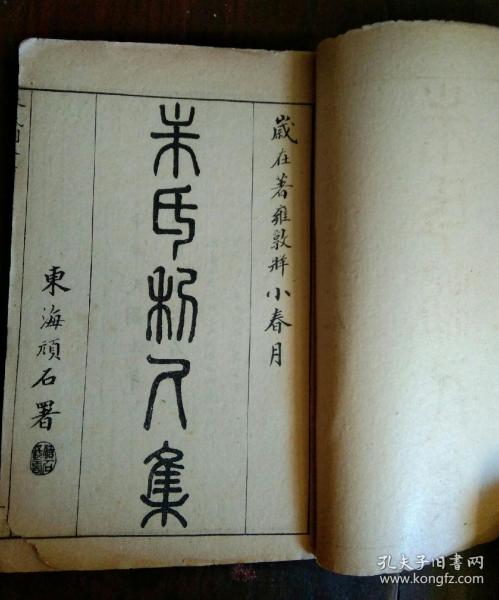 歲在著雍敦牂小春月
朱氏利人集
東海頑石署
孔夫子旧书网
www.kongfz.com